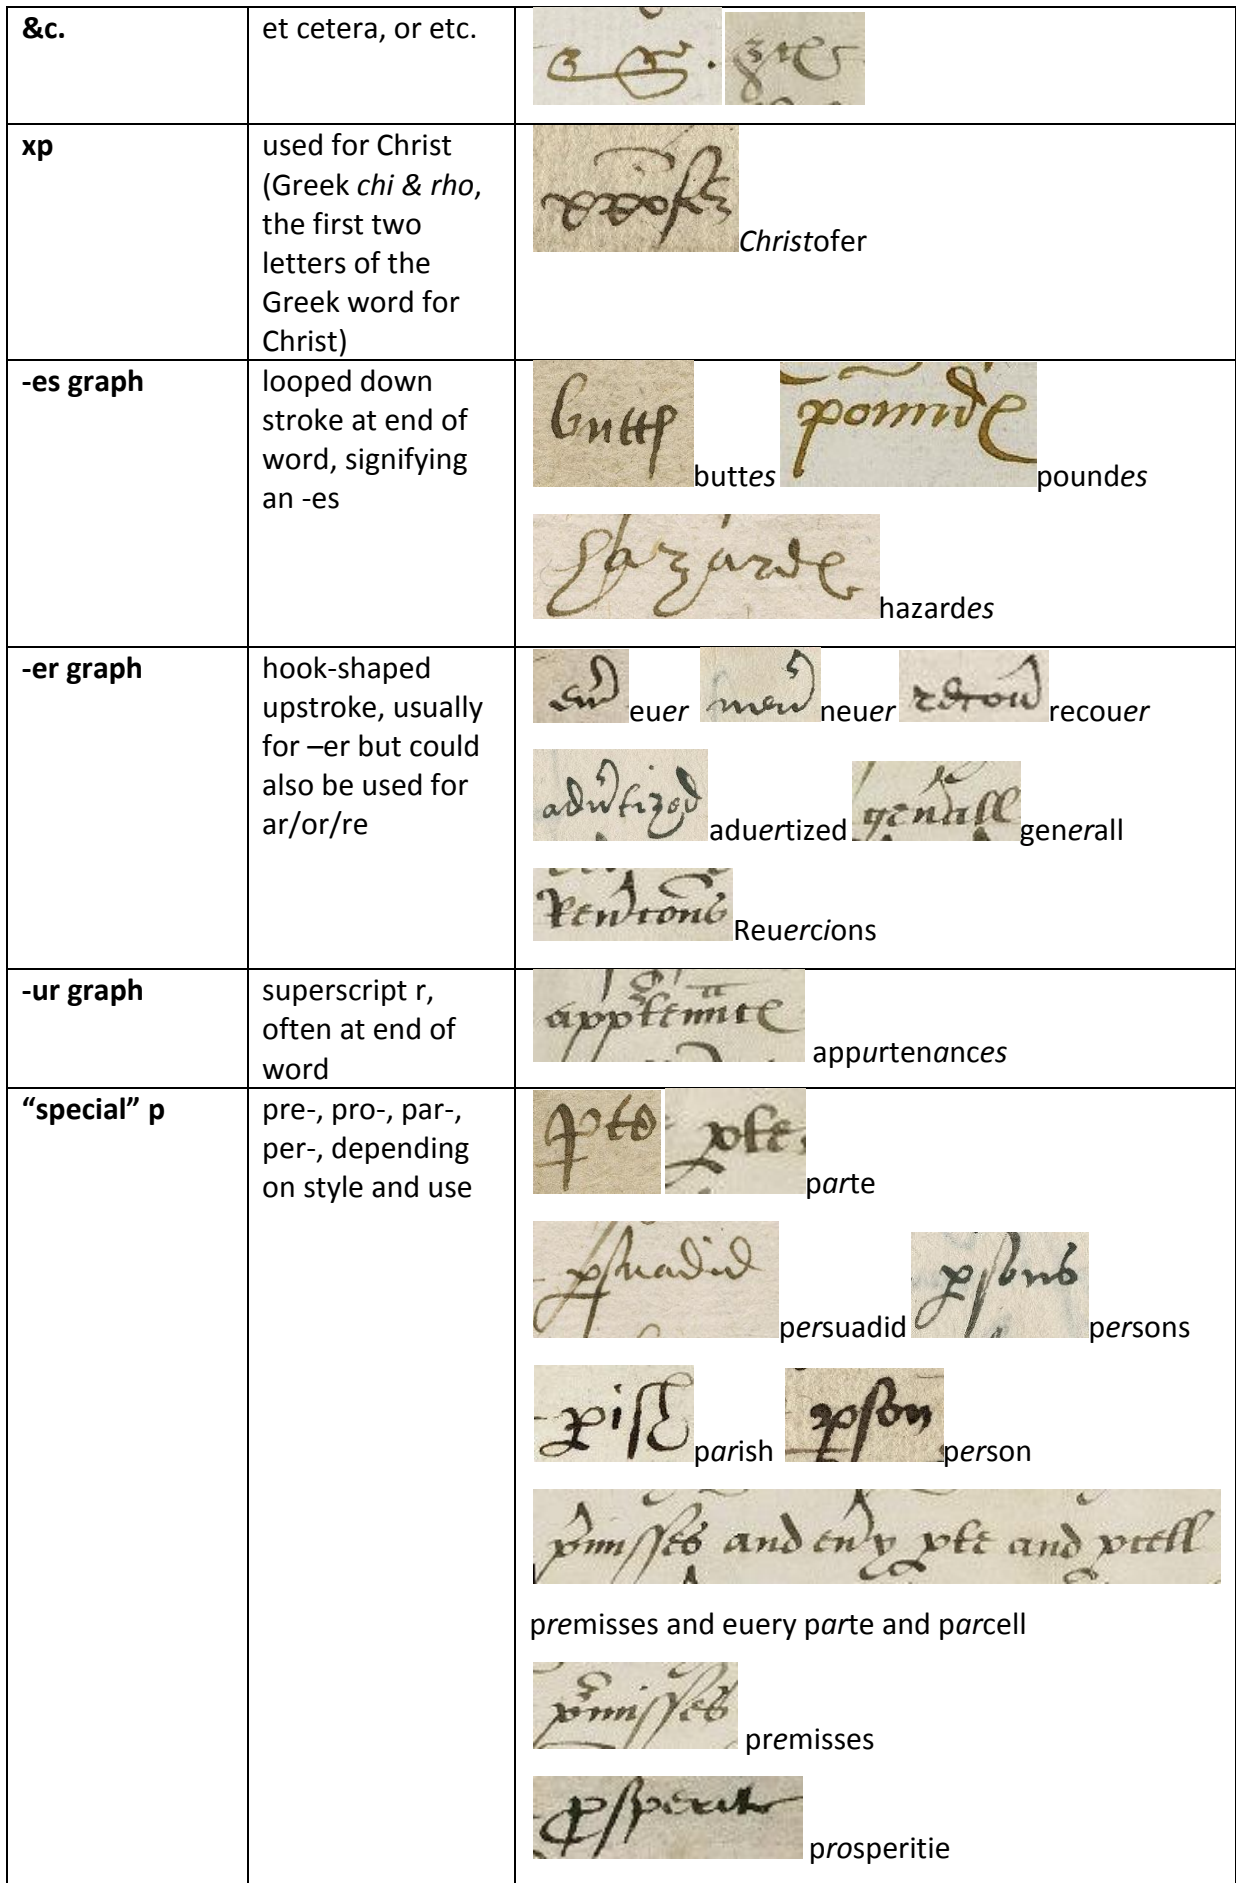 &c.
et cetera, or etc.
xp
used for Christ
(Greek chi & rho,
the first two
letters of the
Greek word for
Christ)
Christofer
-es graph
looped down
stroke at end of
word, signifying
an -es
buttes
poundes
hazardes
-er graph
hook-shaped
upstroke, usually
for –er but could
also be used for
ar/or/re
euer
neuer
recouer
aduertized
generall
Reuercions
-ur graph
superscript r,
often at end of
word
appurtenances
“special” p
pre-, pro-, par-,
per-, depending
on style and use
parte
persuadid
persons
parish
person
premisses and euery parte and parcell
premisses
prosperitie